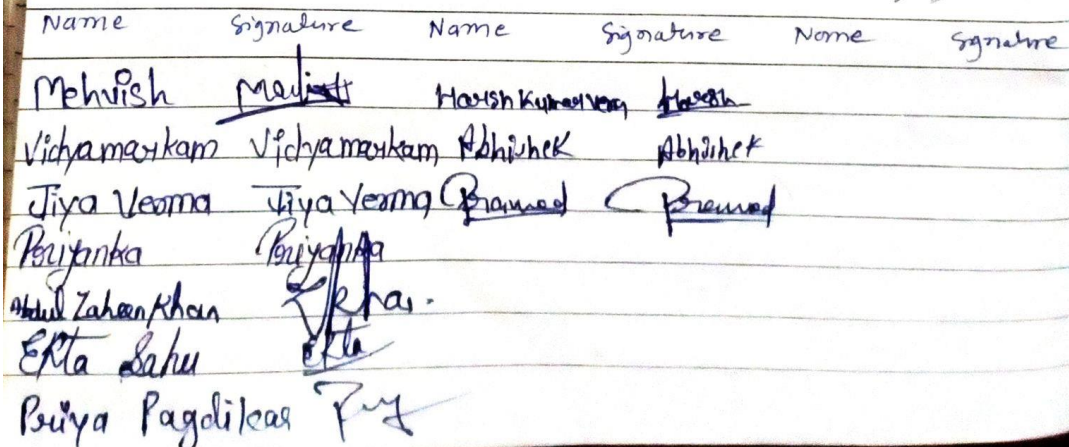 Name Signature Name Signature Nome Sgnature
Mehvish Harsh Kumar Verma Harsh
Vidyamarkam Vidyamarkam Abhishek Abhishek
Jiya Verma Jiya Verma Pramod Pramod
Priyanka Priyanka
Abdul Zaheen Khan Khan.
Ekta Sahu Ekta
Priya Pagdikar